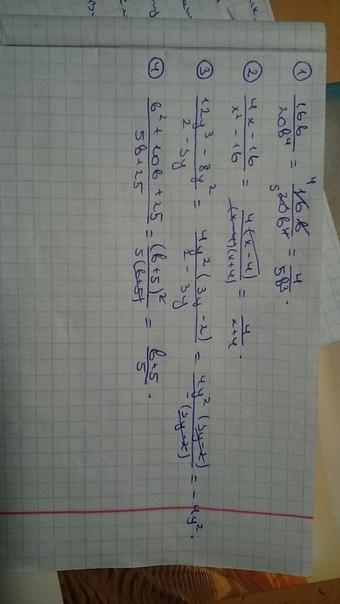 ① 16b/20b⁴ = 16b/20b⁴ = 4/5b³.
② 4x-16/x²-16 = 4(x-4)/(x-4)(x+4) = 4/x+4.
③ 12y³-8y²/2-3y = 4y²(3y-2)/2-3y = 4y²(3y-2)/-(3y-2) = -4y².
④ b²+10b+25/5b+25 = (b+5)²/5(b+5) = b+5/5.